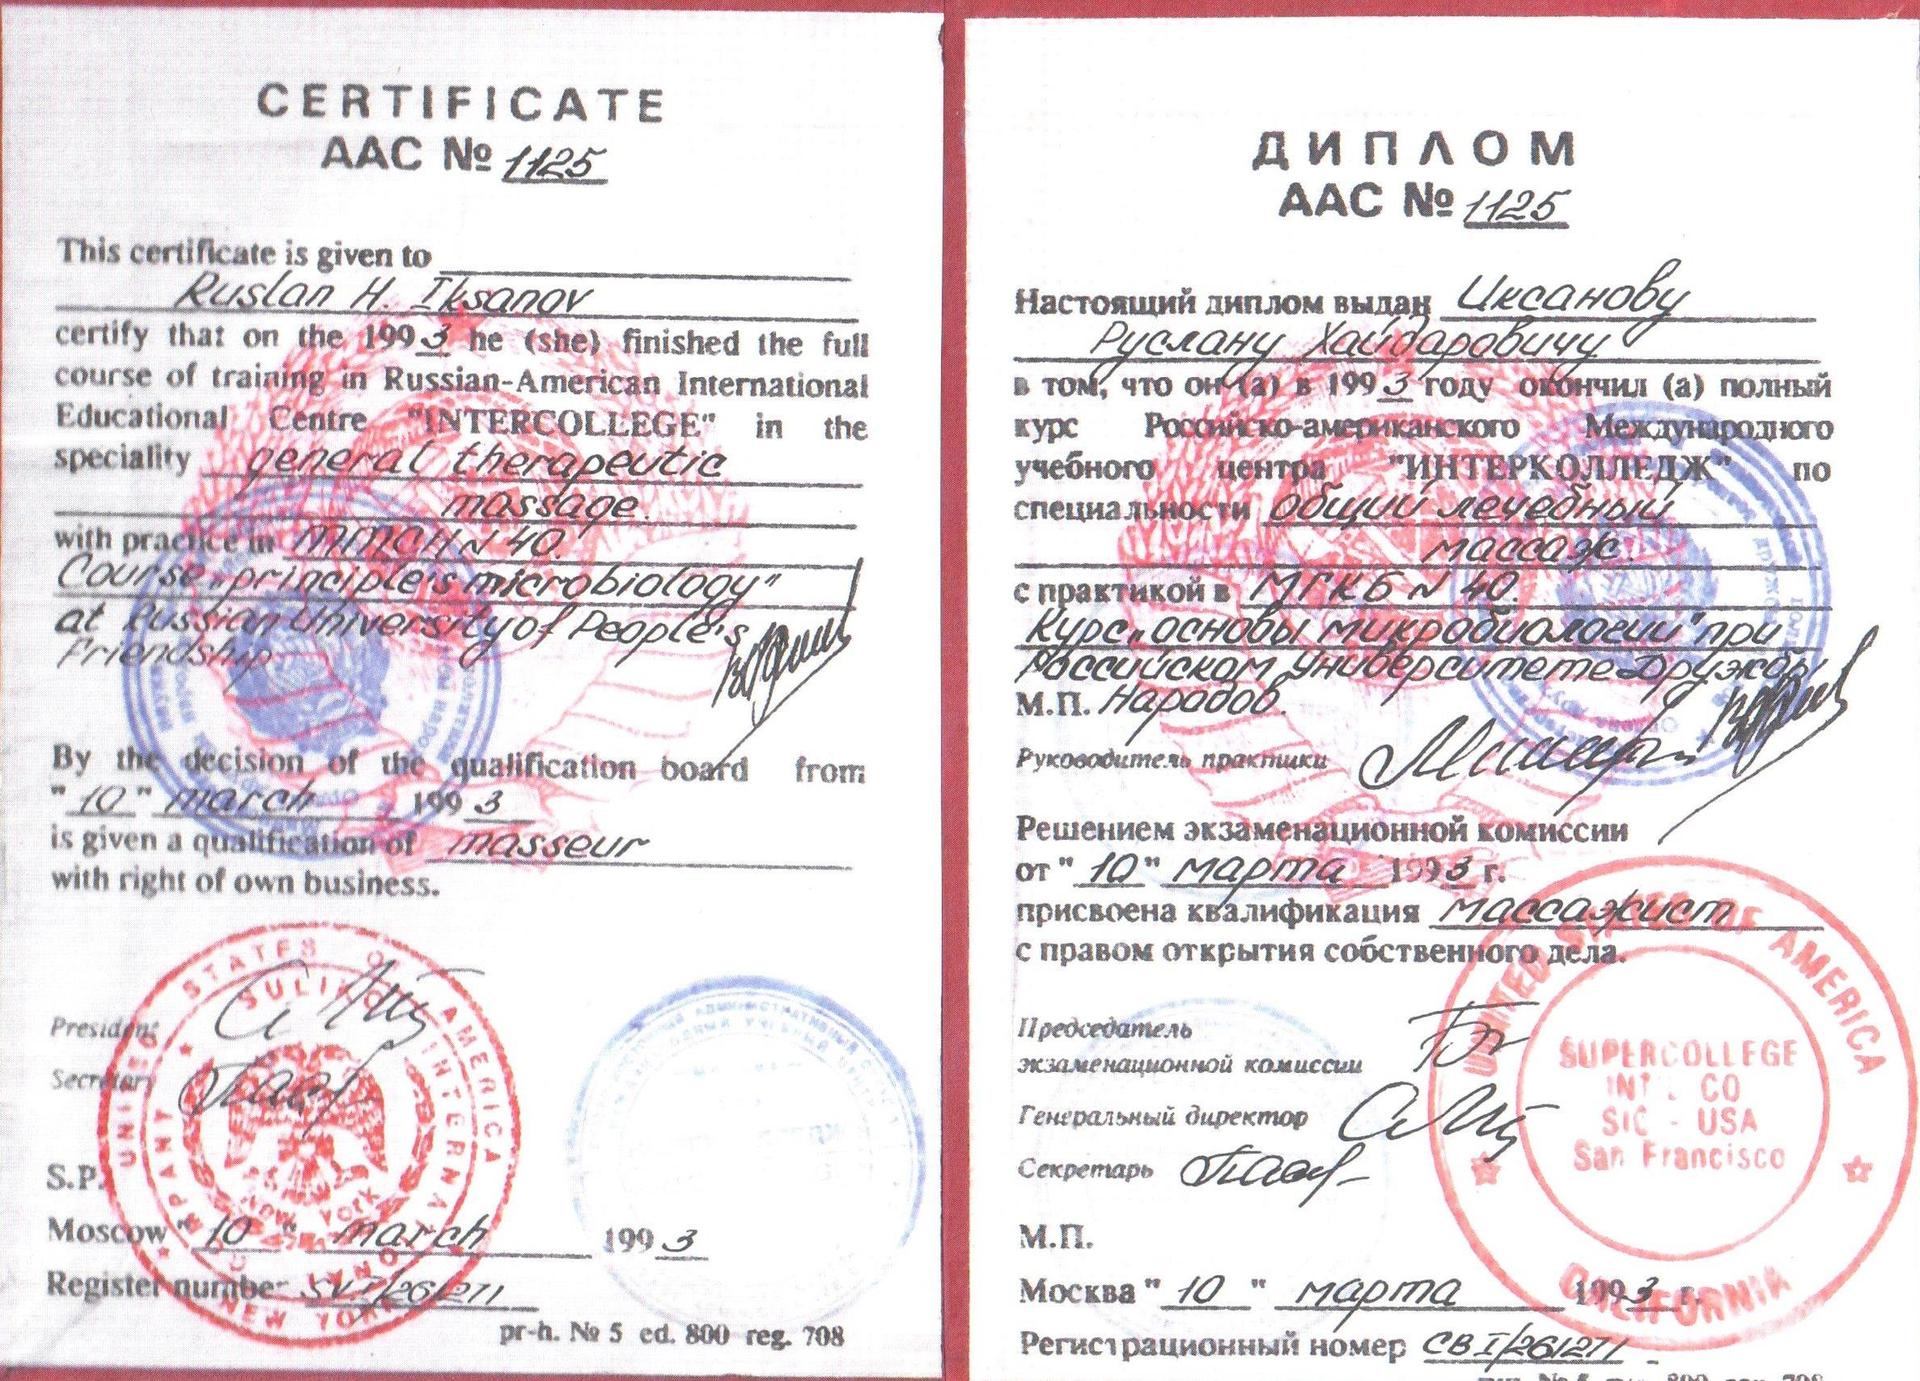 CERTIFICATE
AAC № 1125
This certificate is given to
Ruslan H. Iksanov
certify that on the 1993 he (she) finished the full
course of training in Russian-American International
Educational Centre "INTERCOLLEGE" in the
speciality general therapeutic
massage.
with practice in MMCH N 40.
Course „principle's microbiology"
at Russian University of People's
Friendship
By the decision of the qualification board from
"10" march 1993
is given a qualification of masseur
with right of own business.
President
Secretary
S.P.
Moscow "10" march 1993
Register number SVI/261271
pr-h. № 5 ed. 800 reg. 708
UNITED STATES OF AMERICA
NEW YORK
ДИПЛОМ
ААС № 1125
Настоящий диплом выдан Иксанову
Руслану Хайдаровичу
в том, что он (а) в 1993 году окончил (а) полный
курс Российско-американского Международного
учебного центра "ИНТЕРКОЛЛЕДЖ" по
специальности общий лечебный
массаж.
с практикой в МГКБ N 40.
Курс „основы микробиологии" при
Российском Университете Дружбы
М.П. Народов.
Руководитель практики
Решением экзаменационной комиссии
от "10" марта 1993 г.
присвоена квалификация массажист
с правом открытия собственного дела.
Председатель
экзаменационной комиссии
Генеральный директор
Секретарь
М.П.
Москва "10" марта 1993 г.
Регистрационный номер СВI/261271
UNITED STATES OF AMERICA
SUPERCOLLEGE
INT'L CO
SIC - USA
San Francisco
CALIFORNIA